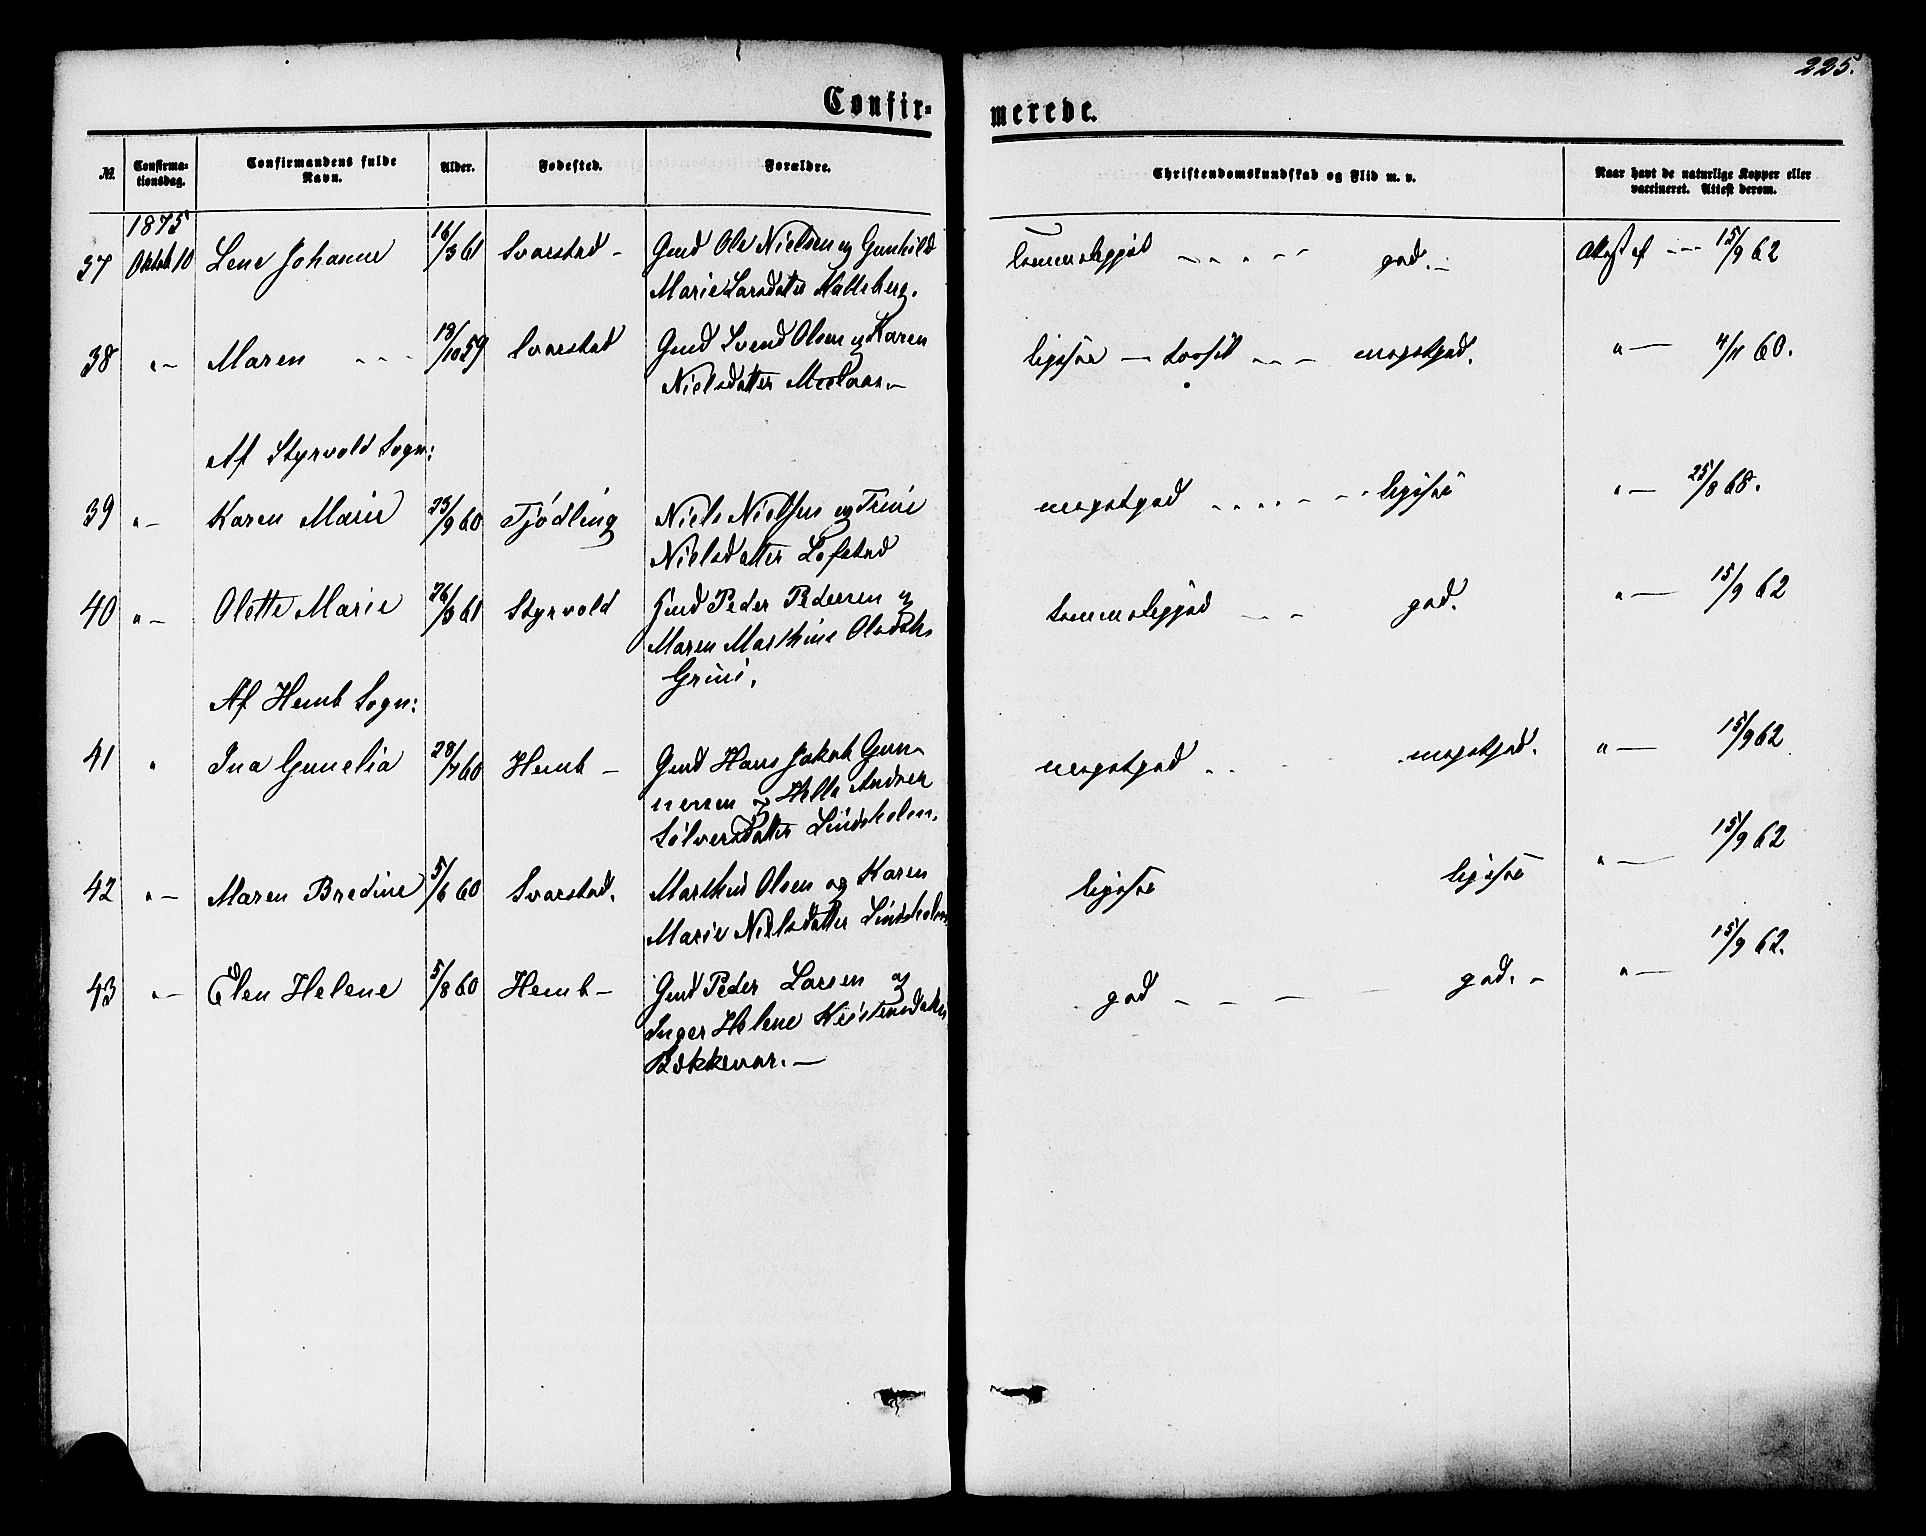 225.
Confir-
merede.
№.
Confirma-
tionsdag.
Confirmandens fulde
Navn.
Alder.
Fødested.
Forældre.
Christendomskundskab og Flid m. v.
Naar havt de naturlige Kopper eller
vaccineret. Attest derom.
1875
37 Oktob 10 Lene Johanne 16/3 61 Svarstad – Gmd Ole Nielsen og Gunhild god. – 15/9 62
Marie Larsdatter
38 " – Maren 18/10 59 Svarstad Gmd Svend Olsen og Karen megetgod. " – 4/11 60.
Nielsdatter
Af Styrvold Sogn:
39 " – Karen Marie 23/9 60 Tjödling Niels Nielsen og Trine megetgod ligesaa " – 25/8 68.
Nielsdatter Lofstad
40 " – Olette Marie 26/3 61 Styrvold Gmd Peder Pedersen og god. " – 15/9 62
Maren Marthine Olsdatr
Grini.
Af Hemb Sogn:
41 " Ina Gunelia 28/7 60 Hemb – Gmd Hans Jakob Gun- megetgod megetgod. " – 15/9 62
nersen og Helle Andrea
Sølversdatter Lindsholm.
42 " – Maren Bredine 5/6 60 Svarstad. Marthin Olsen og Karen ligesaa ligesaa " – 15/9 62
Marie Nielsdatter Lindsholm
43 " – Elen Helene 5/8 60 Hemb – Gmd Peder Larsen og god god. – " – 15/9 62.
Inger Helene Kristensdatr
Bækkevar. –